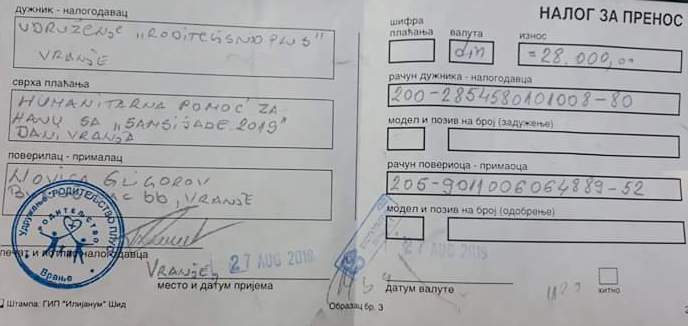 дужник - налогодавац
UDRUŽENJE „RODITELJSTVO PLUS"
VRANJE
сврха плаћања
HUMANITARNA POMOĆ ZA
HANU SA „SAMSIJADE 2019"
DANI VRANJA
поверилац - прималац
NOVICA GLIGOROV
BB, VRANJE
Удружење "РОДИТЕЉСТВО ПЛУС"
РОДИТЕЉСТВО
Врање
печат и потпис налогодавца
VRANJE,
27 AUG 2019
место и датум пријема
Штампа: ГИП "Илијанум" Шид
Образац бр. 3
НАЛОГ ЗА ПРЕНОС
шифра плаћања
валута
износ
din
=28.000,00
рачун дужника - налогодавца
200-2854580101008-80
модел и позив на број (задужење)
рачун повериоца - примаоца
205-9011006064889-52
модел и позив на број (одобрење)
27 AUG 2019
датум валуте
хитно
3